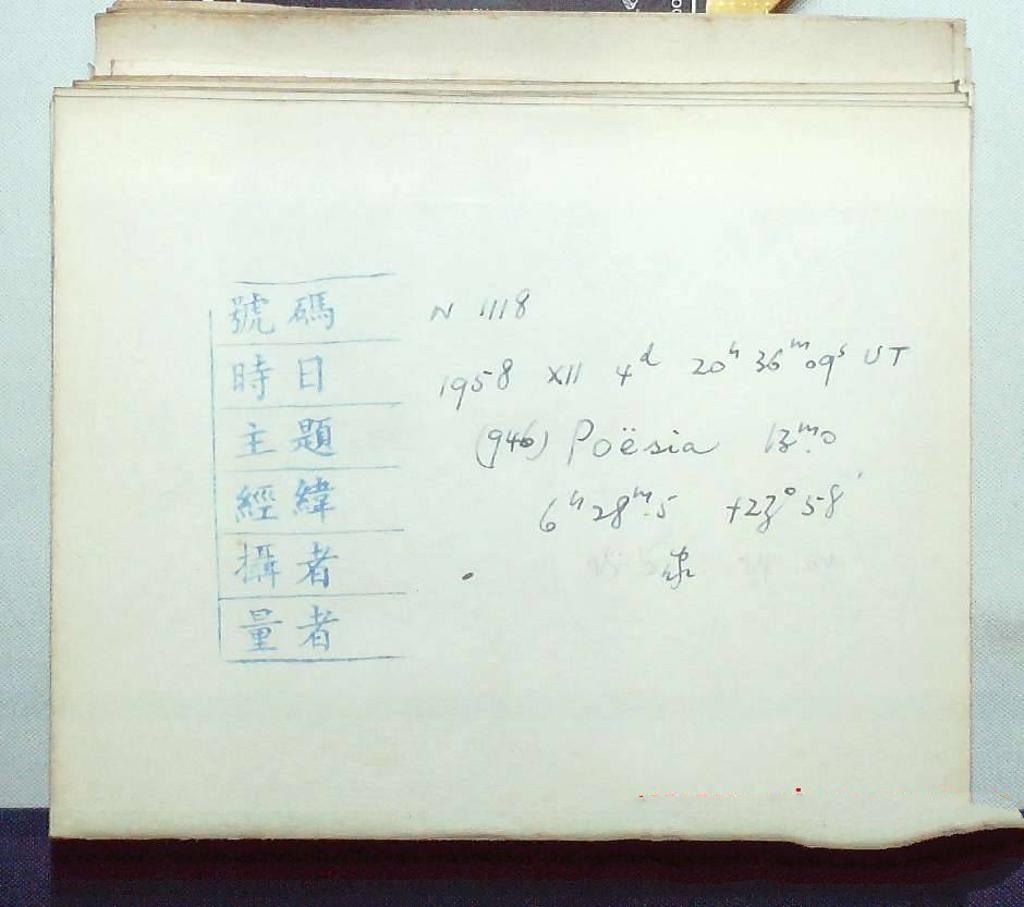 號碼 N 1118
時日 1958 XII 4ᵈ 20ʰ 36ᵐ 09ˢ UT
主題 (946) Poësia 13ᵐ.0
經緯 6ʰ 28ᵐ.5 +23° 58′
攝者
量者